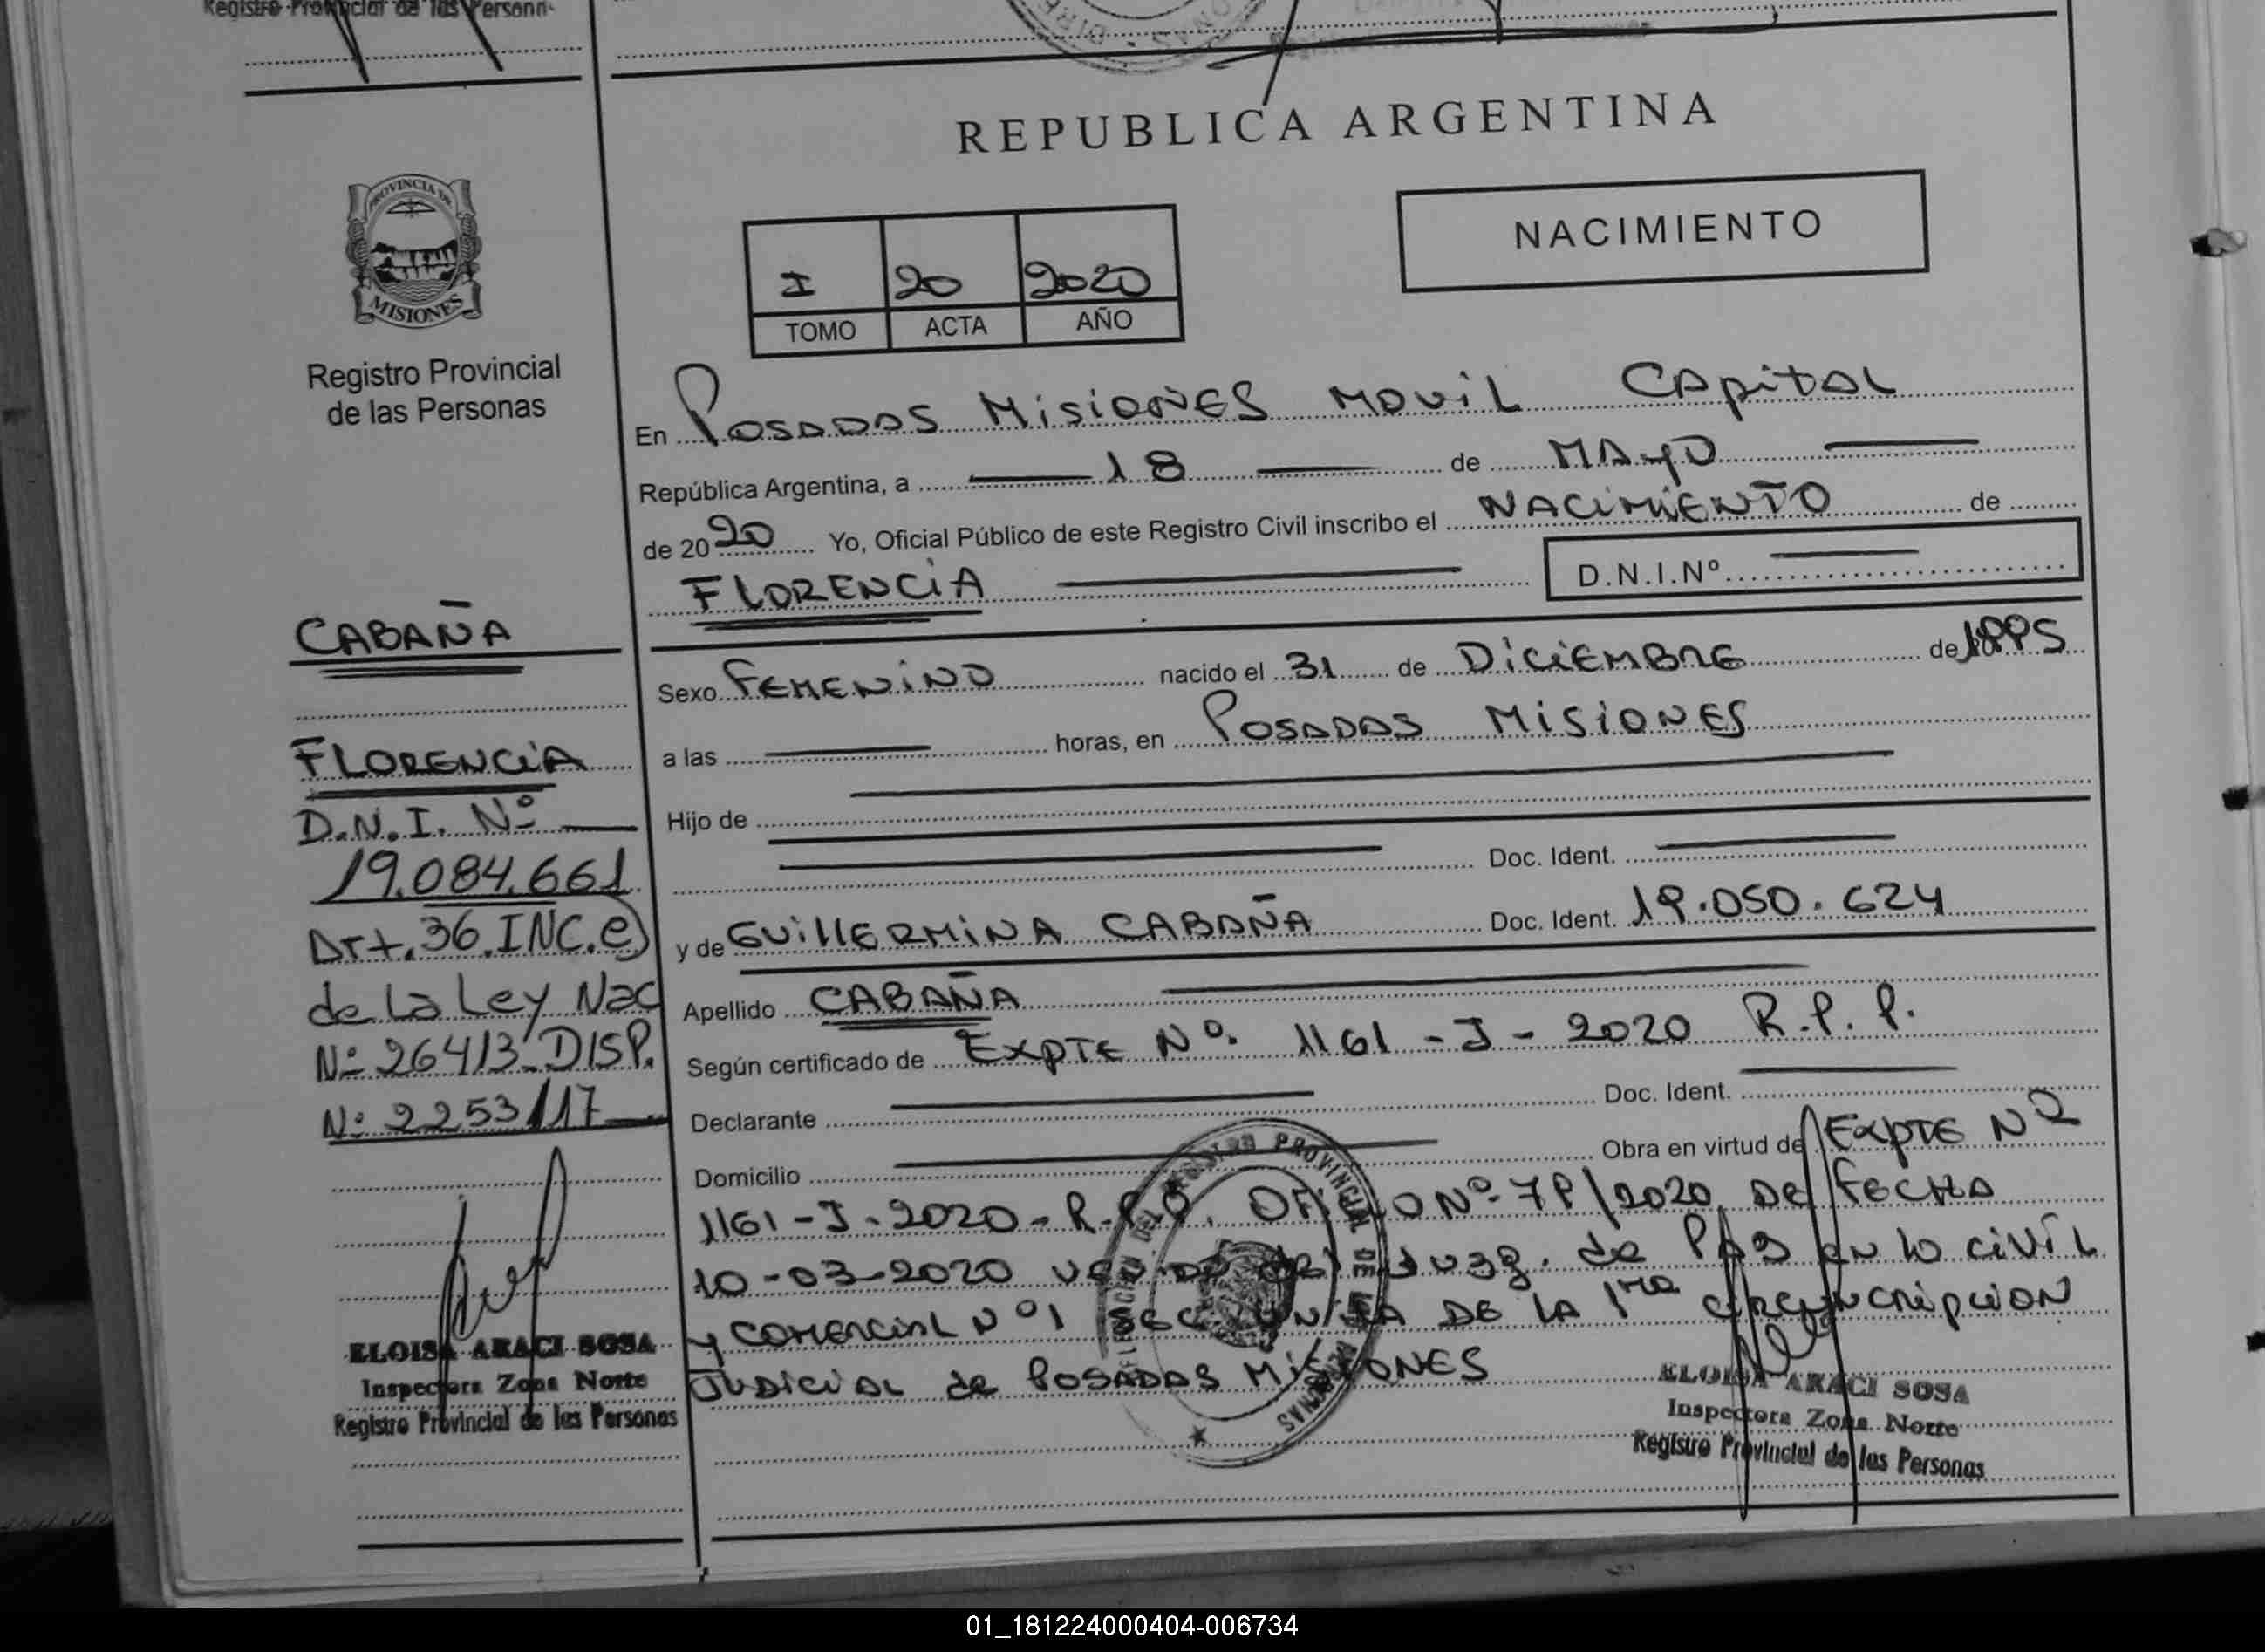 Registro Provincial de las Person
REPUBLICA ARGENTINA
PROVINCIA DE
MISIONES
Registro Provincial
de las Personas
NACIMIENTO
I 20 2020
TOMO ACTA AÑO
En POSADAS MISIONES MOVIL CAPITAL
República Argentina, a 18 de MAYO
de 2020 Yo, Oficial Público de este Registro Civil inscribo el NACIMIENTO de
FLORENCIA D.N.I.Nº
Sexo FEMENINO nacido el 31 de DICIEMBRE de 1995
a las horas, en POSADAS MISIONES
Hijo de
Doc. Ident.
y de GUILLERMINA CABAÑA Doc. Ident. 19.050.624
Apellido CABAÑA
Según certificado de EXPTE Nº. 1161-J-2020 R.P.P.
Declarante Doc. Ident.
Domicilio Obra en virtud de EXPTE Nº
1161-J-2020-R.P.P. OFICIO Nº 79/2020 DE FECHA
10-03-2020 del Juzg. de Paz en lo civil
y COMERCIAL Nº1 SEC UNICA DE LA 1ra circuncripcion
Judicial de POSADAS MISIONES
CABAÑA
FLORENCIA
D.N.I. Nº
19.084.661
Art. 36 INC. e)
de la Ley Nac
Nº 26413 DISP.
Nº 2253/17
ELOISA ARACI SOSA
Inspectora Zona Norte
Registro Provincial de las Personas
ELOISA ARACI SOSA
Inspectora Zona Norte
Registro Provincial de las Personas
REGISTRO PROVINCIAL DE LAS PERSONAS
01_181224000404-006734